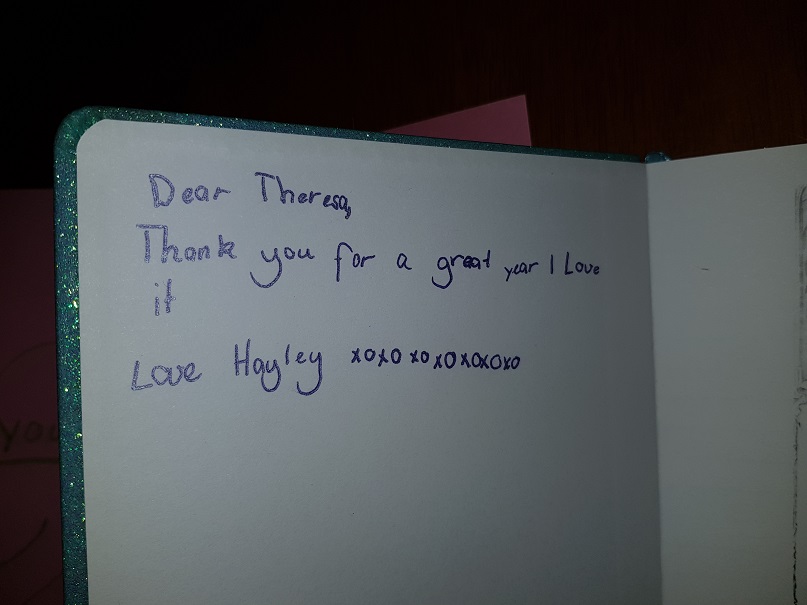 Dear Theresa,
Thank you for a great year I Love
it
Love Hayley xoxo xoxoxoxoxo
you